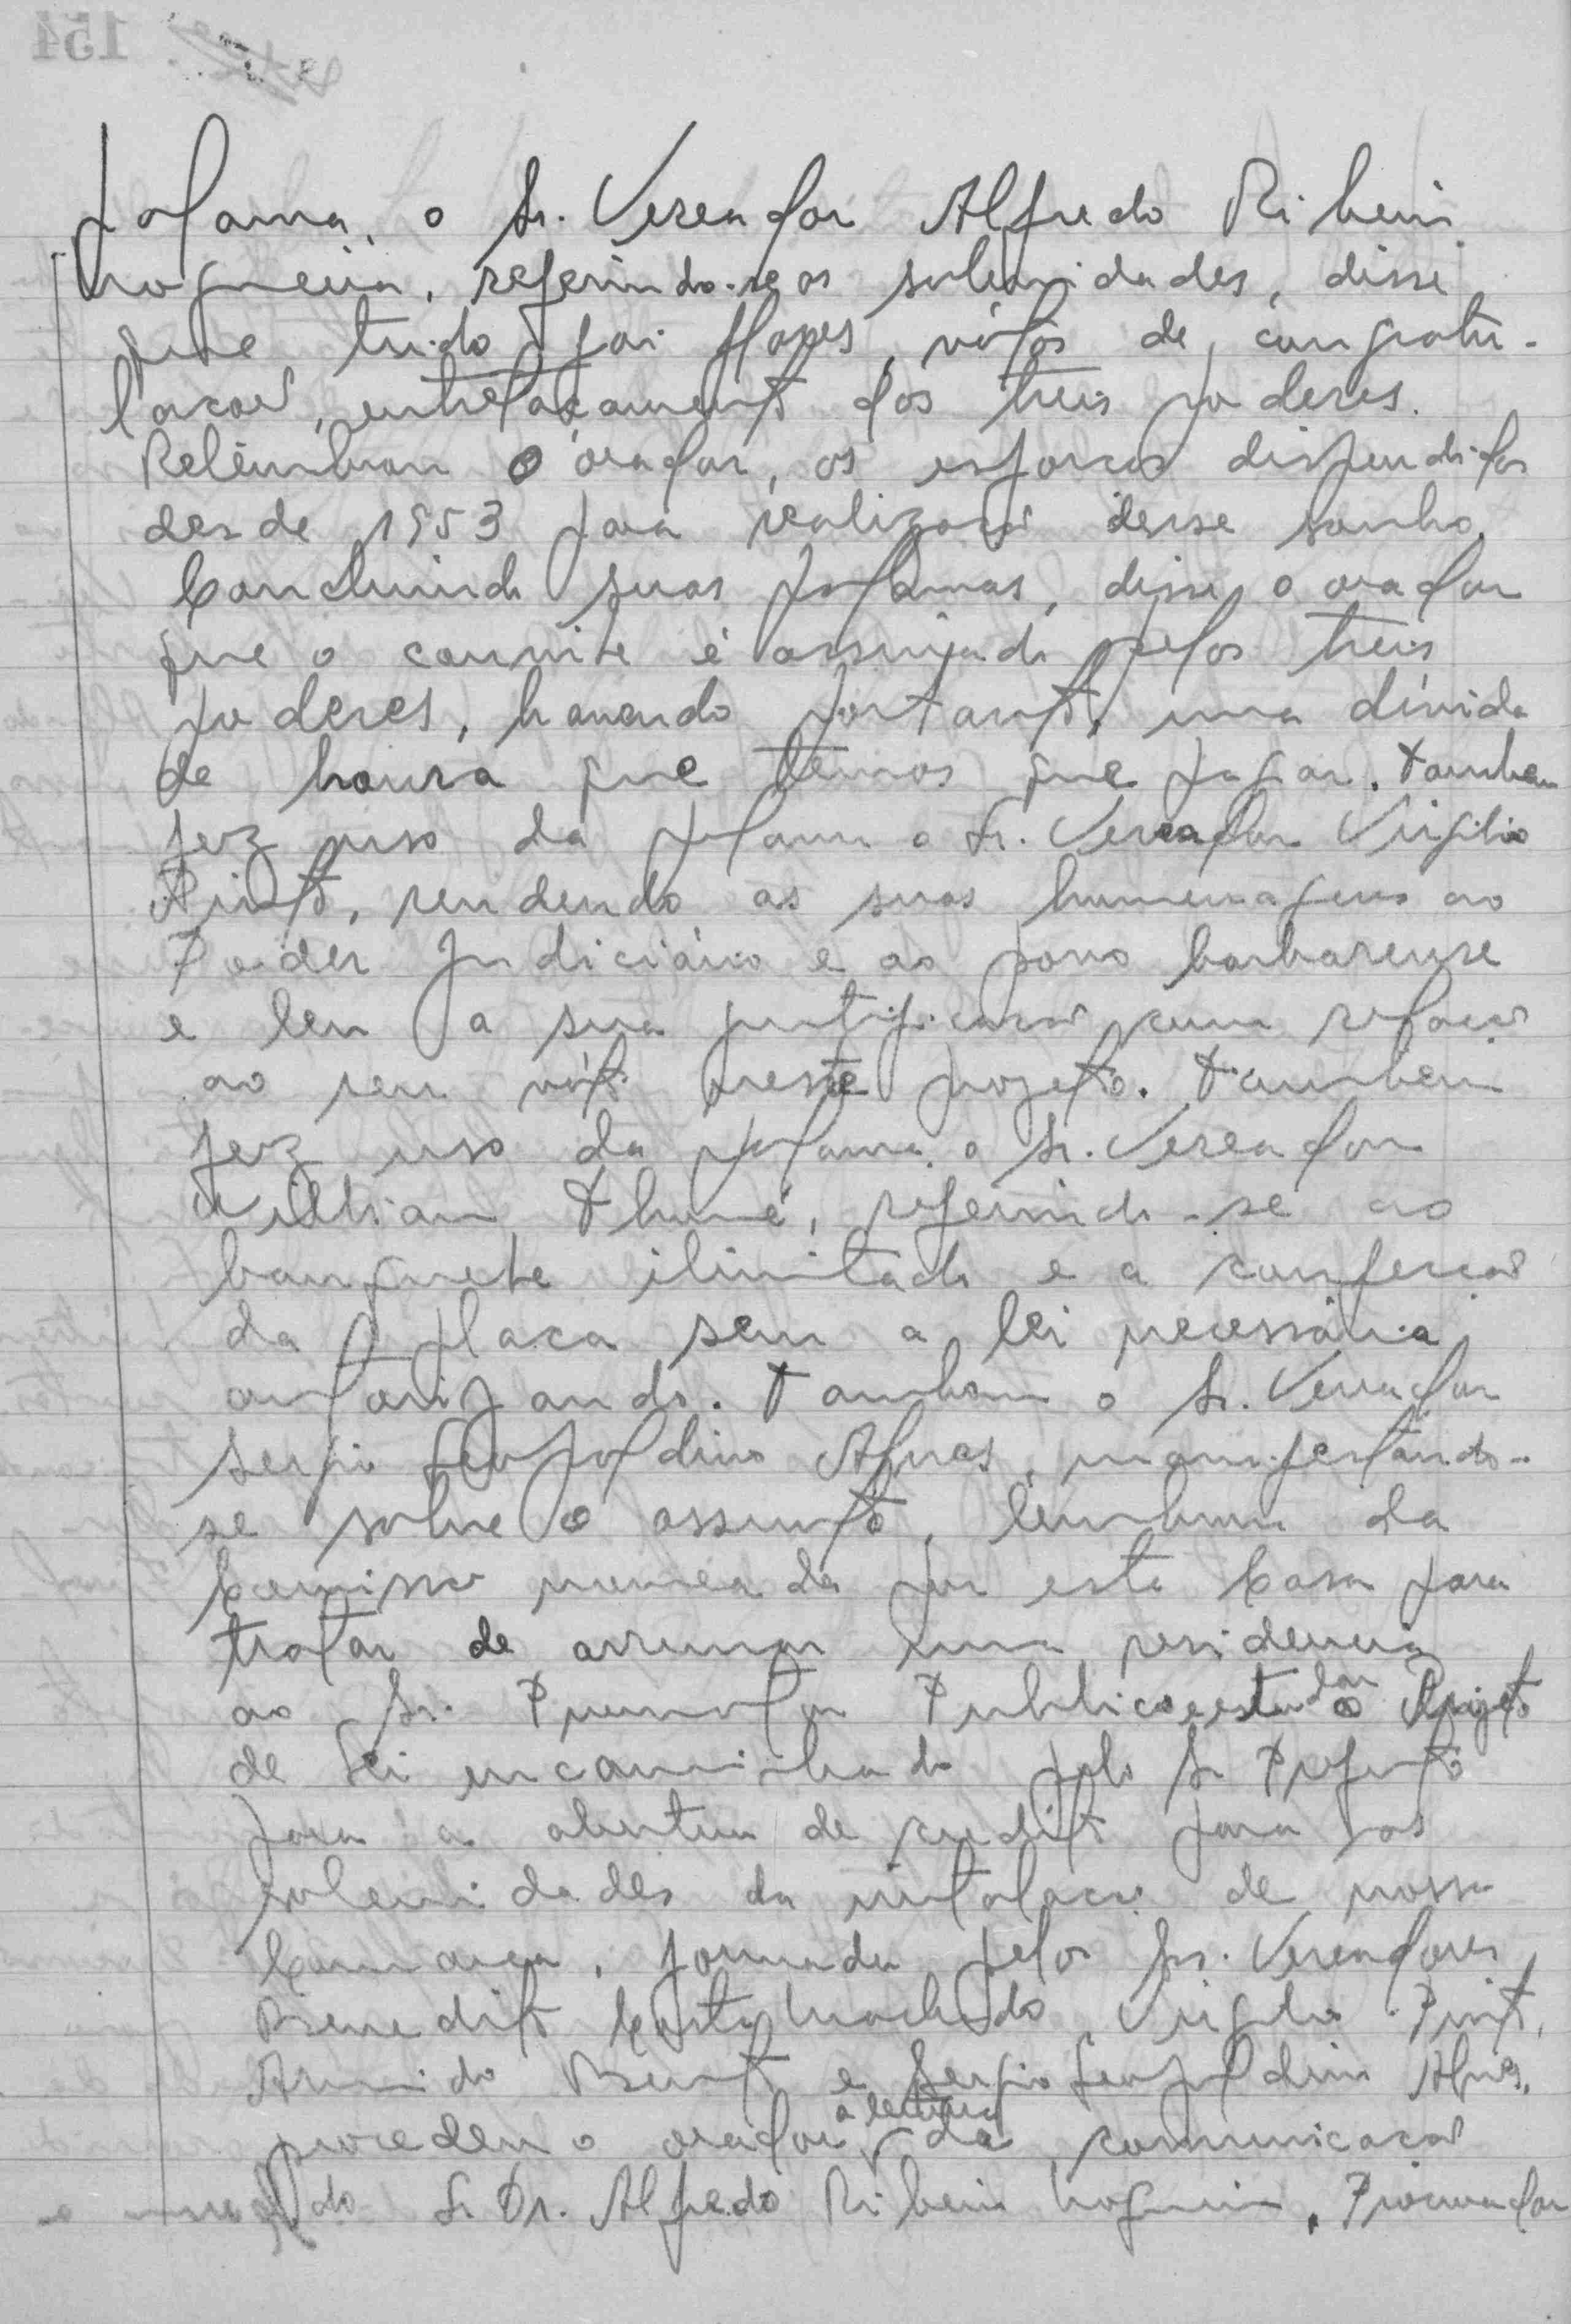 palavra, o Sr. Vereador Alfredo Ribeiro
Nogueira, referindo-se as solenidades, disse
que tudo foi flores, vótos de congratu-
lações, entrelaçamento dos treis poderes.
Relêmbrou o orador, os esforços dispendidos
desde 1953 para realização desse sonho.
Concluindo suas palavras, disse o orador
que o convite é assinado pelos treis
poderes, havendo portanto, uma dívida
de honra que temos que pagar. Tambem
fez uso da palavra o Sr. Vereador Virgilio
Pinto, rendendo as suas homenagens ao
Poder Judiciário e ao povo barbarense
e leu a sua justificação com relação
ao seu vóto neste projeto. Tambem
fez uso da palavra o Sr. Vereador
Willian Thomé, referindo-se ao
banquete ilimitado e a confecção
da placa sem a lei necessária
autorizando. Tambem o Sr. Vereador
Sergio Leopoldino Alves, manifestando-
se sobre o assunto, lembrou da
Comissão nomeada por esta Casa para
tratar de arrumar uma residencia
ao Sr. Promotor Publico e estudar o Projeto
de Lei encaminhado pelo Sr Prefeito
para a abertura de credito para as
solenidades da instalação de nossa
Comarca, formada pelos Srs. Vereadores
Benedito Costa Machado, Virgilio Pinto,
Armindo Bento e Sergio Leopoldino Alves.
procedeu o orador a leitura da comunicação
do Sr Dr. Alfredo Ribeiro Nogueira, Procurador
154